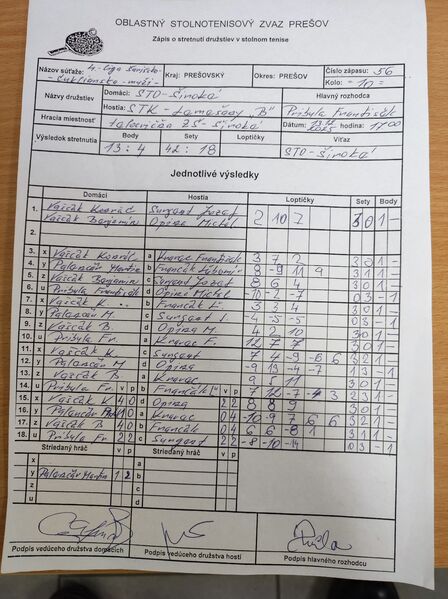 OBLASTNÝ STOLNOTENISOVÝ ZVÄZ PREŠOV
Zápis o stretnutí družstiev v stolnom tenise
Názov súťaže: 4. Liga Šarišsko- muži- Kraj: PREŠOVSKÝ Okres: PREŠOV Číslo zápasu: 56 Kolo: -10-
Názvy družstiev Domáci: STO-Široké Hlavný rozhodca
Hostia: STK - "B" Pribula František
Hracia miestnosť telocvičňa ZŠ- Široké Dátum: hodina: 17.00
Výsledok stretnutia Body Sety Loptičky Víťaz
13:4 42:18 STO-Široké
Jednotlivé výsledky
Domáci Hostia Loptičky Sety Body
1. Vaščák Konrád Surgent Jozef 2 10 7 3 0 1 -
Vaščák Benjamín Opina
2.
3. x Vaščák Konrád a Knerac František 3 7 2 3 0 1 -
4. y Palenčár Martin b 8 -9 11 9 3 1 1 -
5. z Vaščák Benjamín c Surgent Jozef 8 6 4 3 0 1 -
6. u Pribula František d Opina -10 -2 -7 0 3 - 1
7. x Vaščák K. b 3 2 4 3 0 1 -
8. y Palenčár M. c Surgent J. -4 -5 -5 0 3 - 1
9. z Vaščák B. d Opina M. 4 2 10 3 0 1 -
10. u Pribula Fr. a Knerac F. 12 7 7 3 0 1 -
11. x Vaščák K. c Surgent 7 4 -9 -6 6 3 2 1 -
12. y Palenčár M. d Opina -9 13 -4 -7 1 3 - 1
13. z Vaščák B a Knerac 9 5 11 3 0 1 -
14. u Pribula Fr. v p b v p
15. x Vaščák K 4 0 d Opina 2 2 8 8 9 3 0 1 -
16. y Palenčár a Knerac 0 4
17. z Vaščák B 4 0 b 0 4 6 -6 8
18. u Pribula Fr 2 2 c Surgent 2 2 -8 -10 -14 0 3 - 1
Striedaný hráč v p Striedaný hráč v p
x a
y Palenčár Martin 1 2 b
z c
u d
Podpis vedúceho družstva domácich Podpis vedúceho družstva hostí Podpis hlavného rozhodcu